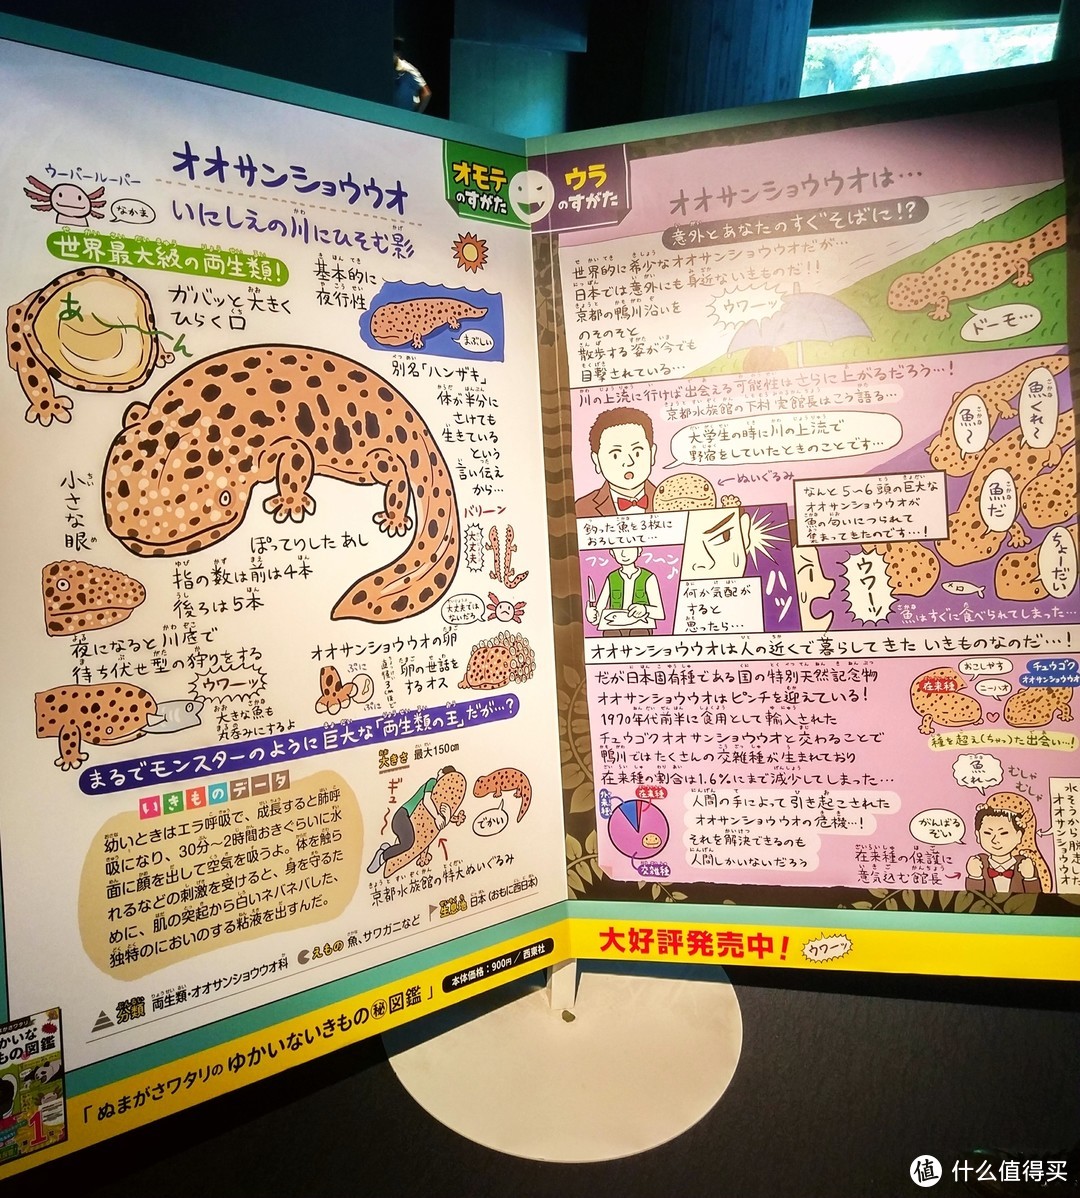 オモテ
のすがた
ウーパールーパー
なかま
オオサンショウウオ
いにしえの川にひそむ影
世界最大級の両生類!
あ
ん
ガバッと大きく
ひらく口
基本的に
夜行性
まぶしい
別名「ハンザキ」
体が半分に
さけても
生きている
という
言い伝え
から…
バリーン
大丈夫
大丈夫では
ないだろ
小さな眼
ぽってりした あし
指の数は前は4本
後ろは5本
夜になると川底で
待ち伏せ型の狩りをする
ウワーッ
大きな魚も
丸呑みにするよ
オオサンショウウオの卵
ぷに
ぷに
卵の世話を
するオス
まるでモンスターのように巨大な「両生類の王」だが…?
いきものデータ
幼いときはエラ呼吸で、成長すると肺呼
吸になり、30分〜2時間おきぐらいに水
面に顔を出して空気を吸うよ。体を触ら
れるなどの刺激を受けると、身を守るた
めに、肌の突起から白いネバネバした、
独特のにおいのする粘液を出すんだ。
大きさ 最大150cm
ギュー
でかい
京都水族館の特大ぬいぐるみ
生息地 日本(おもに西日本)
えもの 魚、サワガニなど
分類 両生類・オオサンショウウオ科
「ぬまがさワタリのゆかいないきもの㊙図鑑」
本体価格:900円/西東社
ウラ
のすがた
オオサンショウウオは…
意外とあなたのすぐそばに!?
世界的に希少なオオサンショウウオだが…
日本では意外にも身近ないきものだ!!
京都の鴨川沿いを
のそのそと
散歩する姿が今でも
目撃されている…
ウワーッ
ドーモ…
川の上流に行けば出会える可能性はさらに上がるだろう…!
京都水族館の下村実館長はこう語る…
大学生の時に川の上流で
野宿をしていたときのことです…
ぬいぐるみ
釣った魚を3枚に
おろしていて…
フン
フーン♪
何か気配が
すると
思ったら…
ハッ
なんと5〜6頭の巨大な
オオサンショウウオが
魚の匂いにつられて
集まってきたのです…!
魚〜
魚くれ〜
魚だ
ちょーだい
ウワーッ
魚はすぐに食べられてしまった…
オオサンショウウオは人の近くで暮らしてきたいきものなのだ…!
だが日本固有種である国の特別天然記念物
オオサンショウウオはピンチを迎えている!
1970年代前半に食用として輸入された
チュウゴクオオサンショウウオと交わることで
鴨川ではたくさんの交雑種が生まれており
在来種の割合は1.6%にまで減少してしまった…
在来種
おこしやす
ニーハオ
チュウゴク
オオサンショウウオ
種を超え(ちゃっ)た出会い…!
在来種
交雑種
人間の手によって引き起こされた
オオサンショウウオの危機…!
それを解決できるのも
人間しかいないだろう
魚
くれ〜
むしゃ
むしゃ
がんばる
ぞい
在来種の保護に
意気込む館長
大好評発売中!
ウワーッ
値 什么值得买